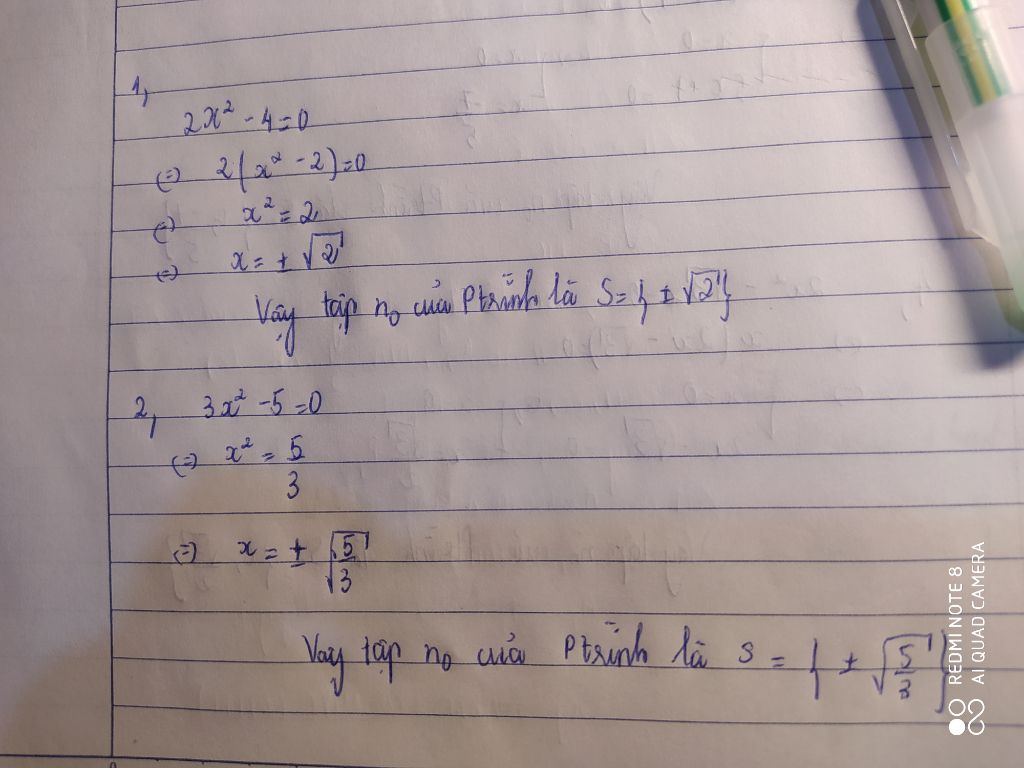 1,
2x² - 4 = 0
(=) 2(x² - 2) = 0
(=) x² = 2
(=) x = ± √2
Vậy tập n₀ của Ptrình là S = { ± √2 }
2, 3x² - 5 = 0
(=) x² = 5/3
(=) x = ± √(5/3)
Vậy tập n₀ của Ptrình là S = { ± √(5/3) }
REDMI NOTE 8
AI QUAD CAMERA